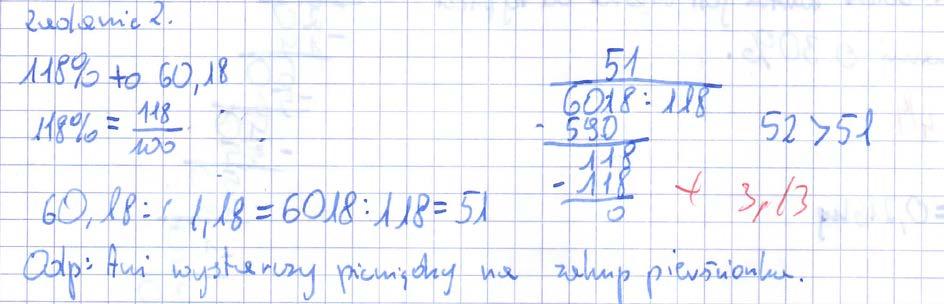 Zadanie 2.
118% to 60,18
118% = 118/100
60,18 : 1,18 = 6018 : 118 = 51
51
6018 : 118
- 590
118
- 118
0
52 > 51
+ 3p/3
Odp: Ani wystarczy pieniędzy na zakup pierścionka.